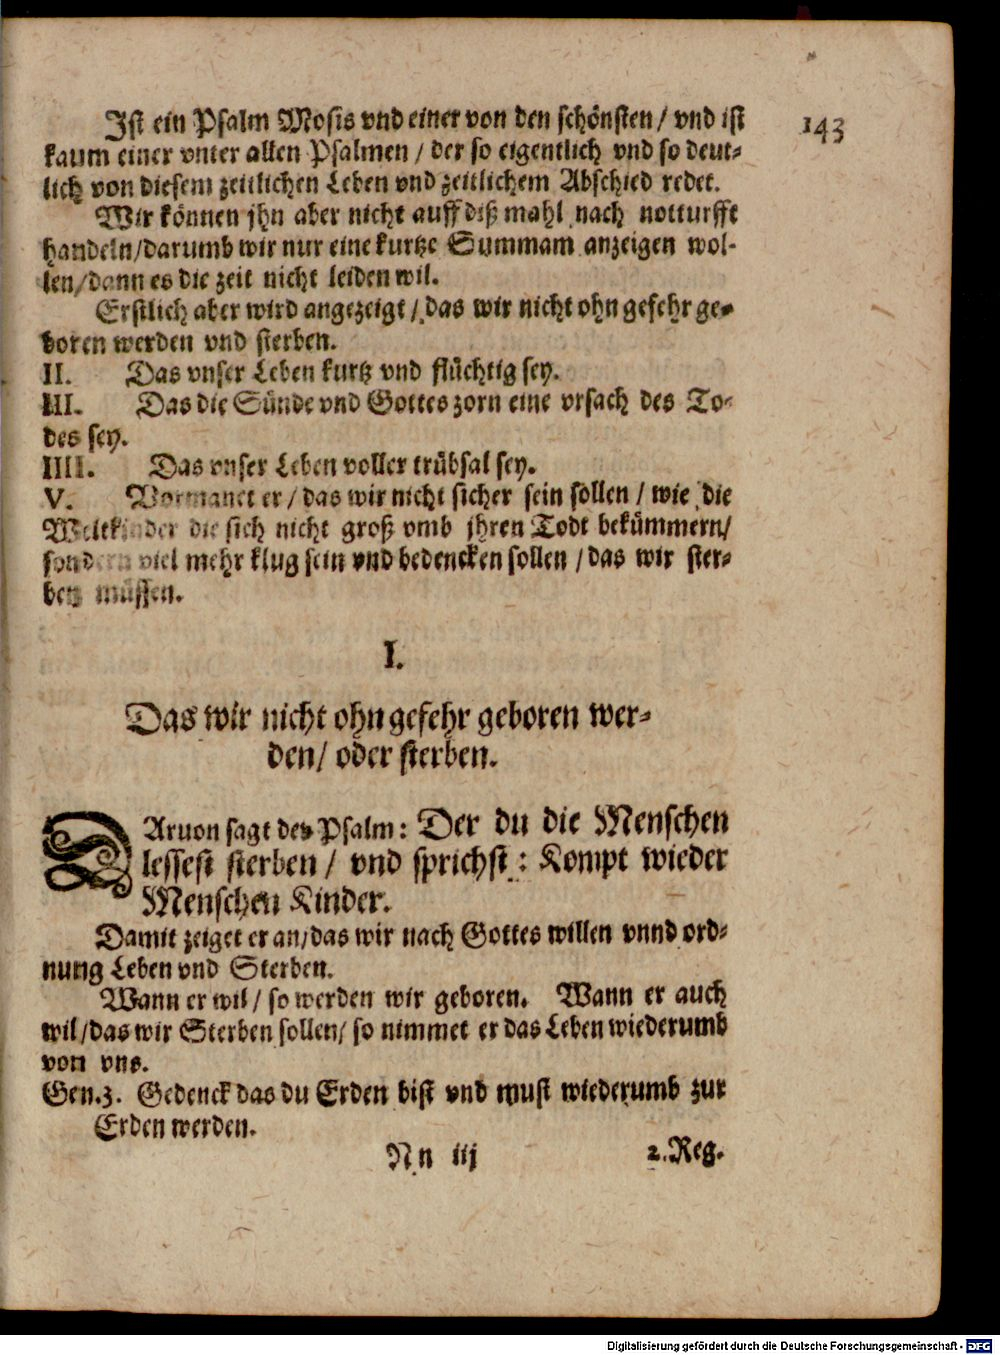 143
Ist ein Psalm Mosis vnd einer von den schönsten / vnd ist
kaum einer vnter allen Psalmen / der so eigentlich vnd so deut-
lich von diesem zeitlichen Leben vnd zeitlichem Abschied redet.
Wir können jhn aber nicht auff diß mahl nach notturfft
handeln/darumb wir nur eine kurtze Summam anzeigen wol-
len/dann es die zeit nicht leiden wil.
Erstlich aber wird angezeigt / das wir nicht ohngefehr ge-
boren werden vnd sterben.
II. Das vnser Leben kurtz vnd flüchtig sey.
III. Das die Sünde vnd Gottes zorn eine vrsach des To-
des sey.
IIII. Das vnser Leben voller trübsal sey.
V. Vormanet er / das wir nicht sicher sein sollen / wie die
Weltkinder die sich nicht groß vmb jhren Todt bekümmern/
sondern viel mehr klug sein vnd bedencken sollen / das wir ster-
ben müssen.
I.
Das wir nicht ohngefehr geboren wer-
den/ oder sterben.
DAruon sagt der Psalm: Der du die Menschen
lessest sterben / vnd sprichst: Kompt wieder
Menschen Kinder.
Damit zeiget er an/das wir nach Gottes willen vnnd ord-
nung Leben vnd Sterben.
Wann er wil / so werden wir geboren. Wann er auch
wil/das wir Sterben sollen/ so nimmet er das Leben wiederumb
von vns.
Gen.3. Gedenck das du Erden bist vnd must wiederumb zur
Erden werden.
Nn iij 2.Reg.
Digitalisierung gefördert durch die Deutsche Forschungsgemeinschaft - DFG